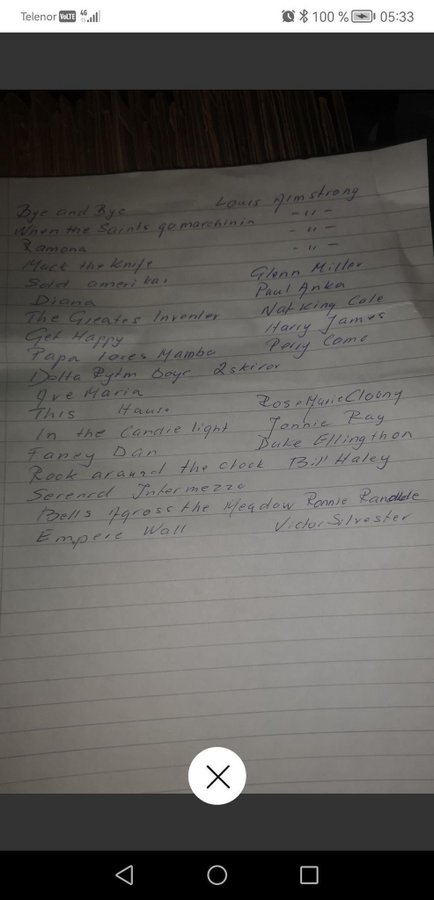 Telenor VoLTE 4G 100 % 05:33
Bye and Bye Louis Armstrong
When the Saints go marchinin - " -
Ramona - " -
Mack the Knife - " -
Sold amerikas Glenn Miller
Diana Paul Anka
The Greates Invenler Nat King Cole
Get Happy Harry James
Papa loves Mambo Perry Como
Delta Rytm Boys 2skivor
Ave Maria
This Hause Rose Marie Cloony
In the Candle light Jonnie Ray
Fancy Dan Duke Ellingthon
Rock around the clock Bill Haley
Serenad Intermezzo
Bells Agross the Meadow Ronnie Ranalde
Empere Wall Victor Silvester